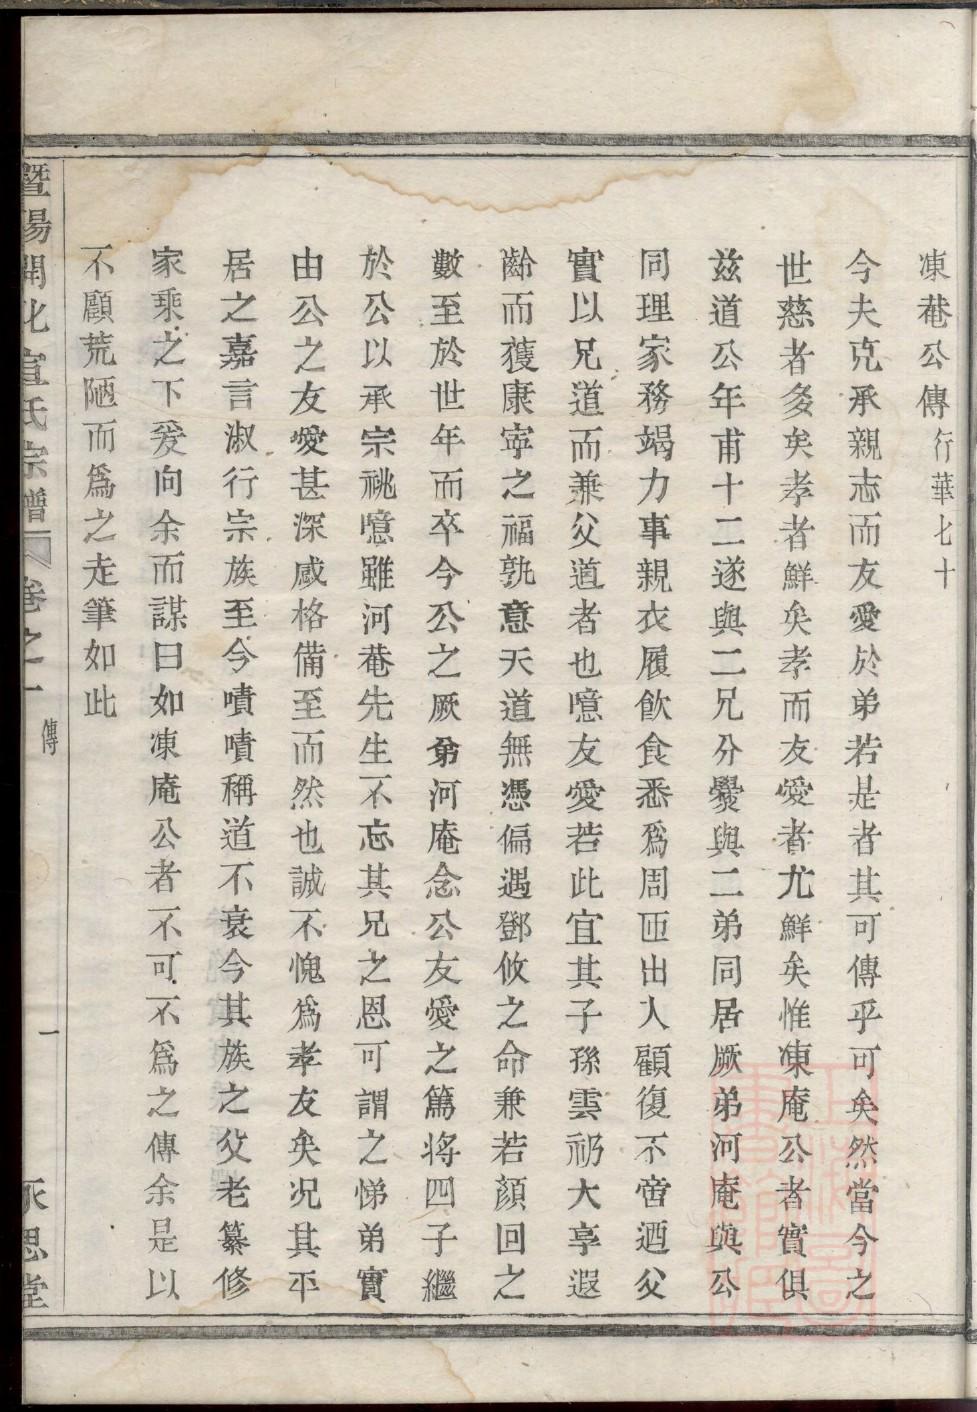 凍菴公傳行華七十
今夫克承親志而友愛於弟若是者其可傳乎可矣然當今之
世慈者多矣孝者鮮矣孝而友愛者尤鮮矣惟凍庵公者實俱
兹道公年甫十二遂與二兄分爨與二弟同居厥弟河庵與公
同理家務竭力事親衣履飲食悉爲周匝出入顧復不啻迺父
實以兄道而兼父道者也噫友愛若此宜其子孫雲礽大享遐
齡而獲康寧之福孰意天道無憑偏遇鄧攸之命兼若顔回之
數至於世年而卒今公之厥弟河庵念公友愛之篤将四子繼
於公以承宗祧噫雖河菴先生不忘其兄之恩可謂之悌弟實
由公之友愛甚深感格備至而然也誠不愧爲孝友矣况其平
居之嘉言淑行宗族至今嘖嘖稱道不衰今其族之父老纂修
家乘之下爰向余而謀曰如凍庵公者不可不爲之傳余是以
不顧荒陋而爲之走筆如此
暨陽開化宣氏宗譜 卷之一 傳 一 永思堂